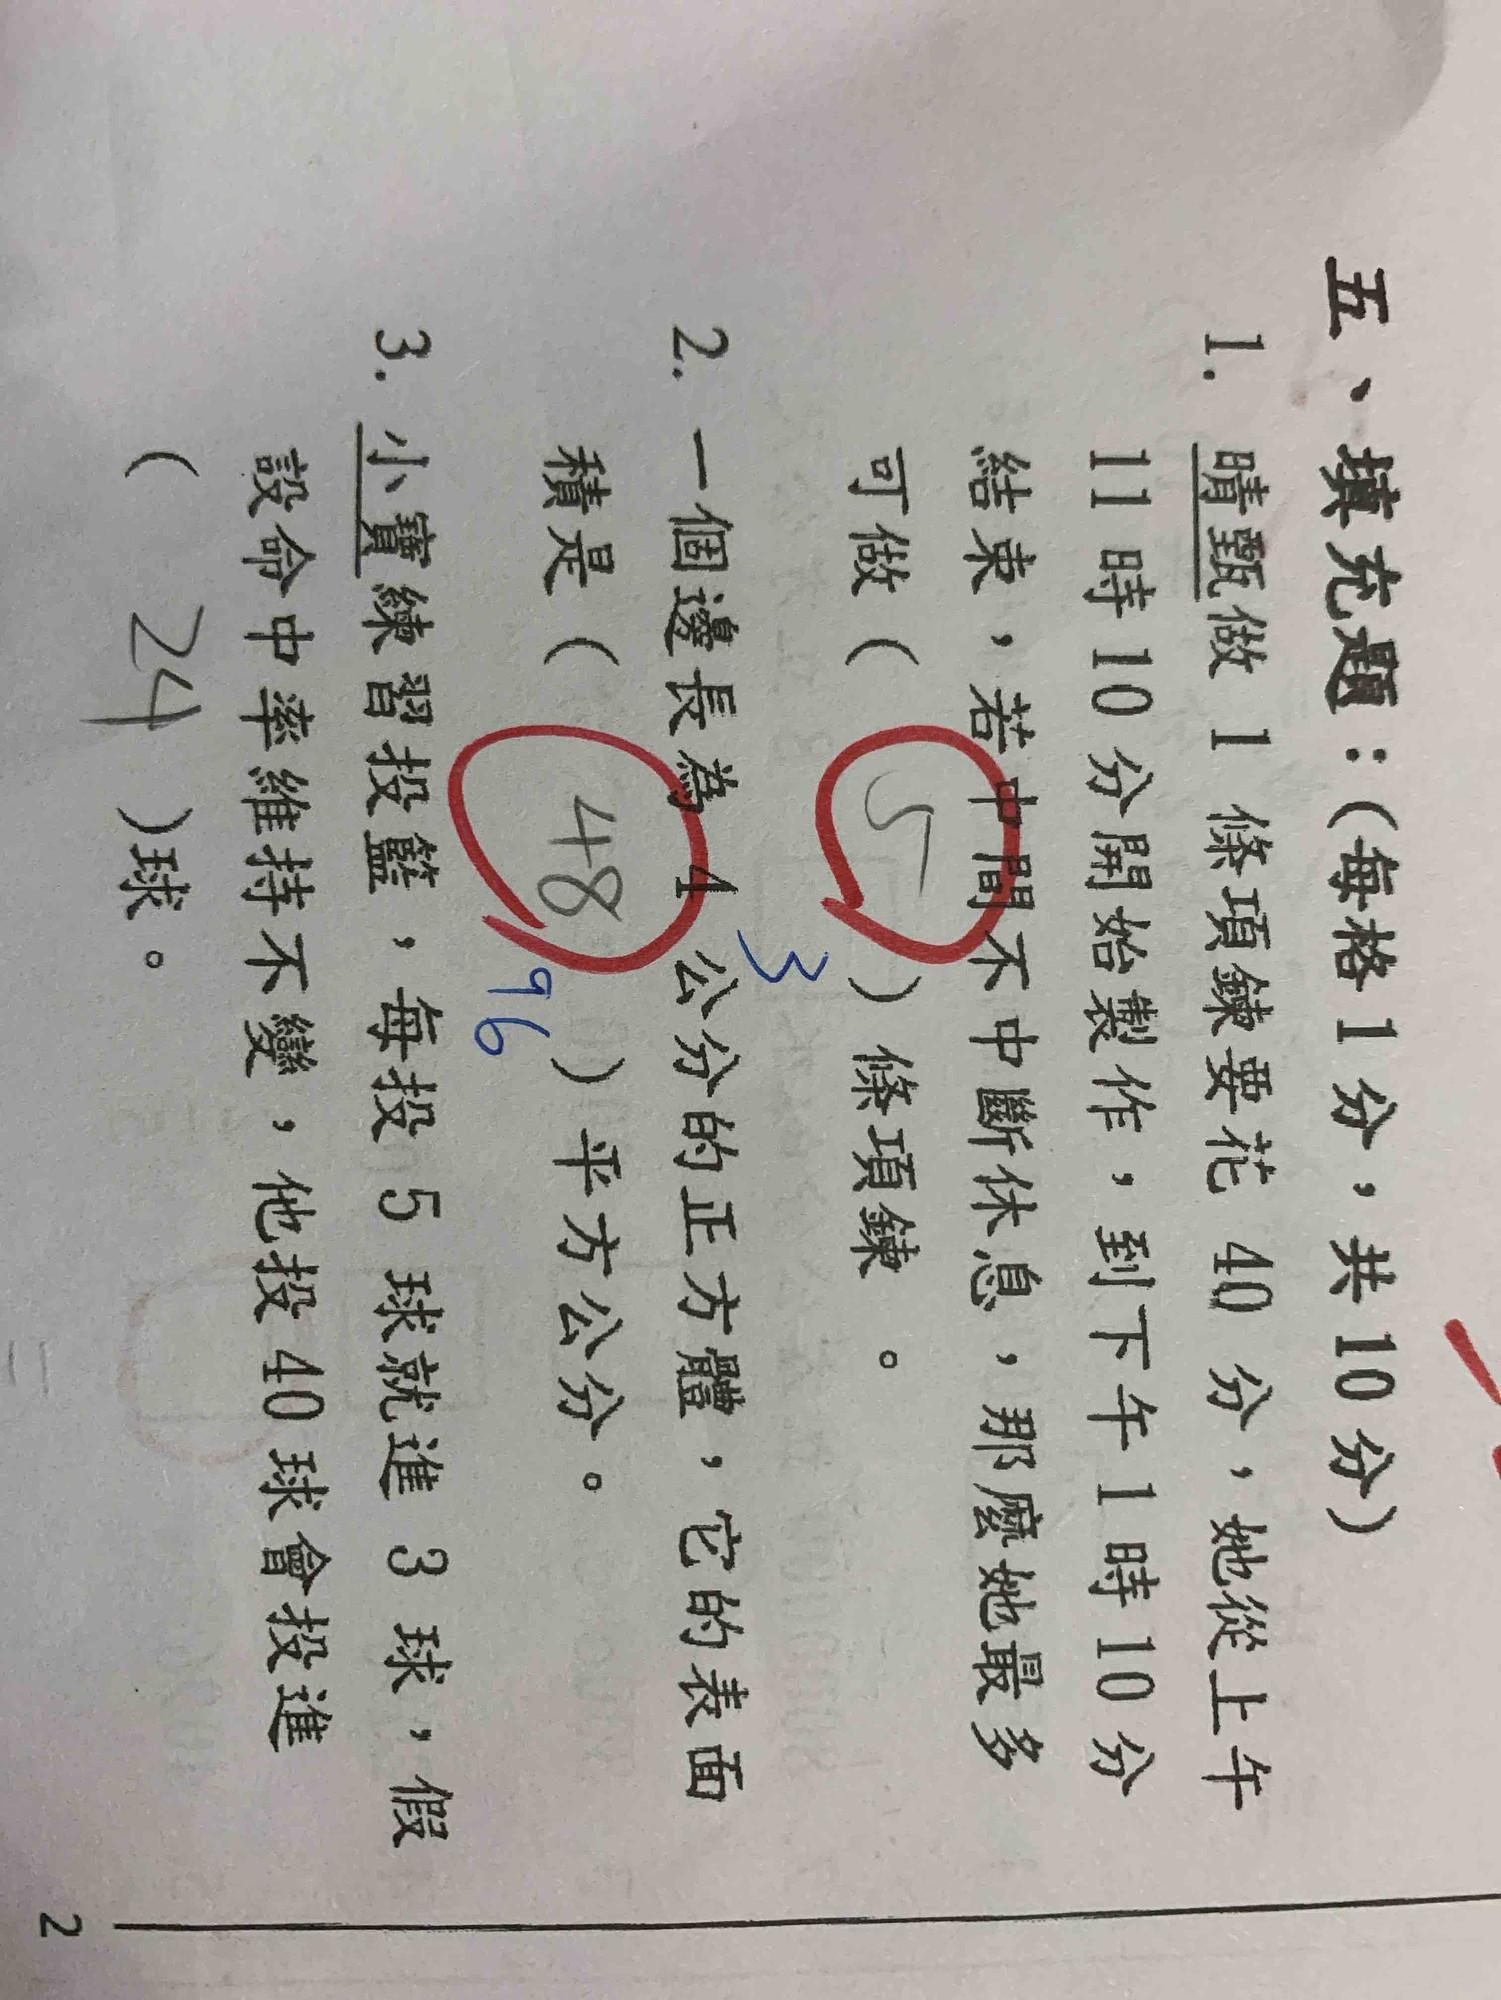 五、填充題：(每格1分，共10分)
1. 晴甄做 1 條項鍊要花 40 分，她從上午
11 時 10 分開始製作，到下午 1 時 10 分
結束，若中間不中斷休息，那麼她最多
可做( 5 ) 條項鍊 。
3
2. 一個邊長為 4 公分的正方體，它的表面
積是( 48 )平方公分。
96
3. 小寶練習投籃，每投 5 球就進 3 球，假
設命中率維持不變，他投 40 球會投進
( 24 )球。
2